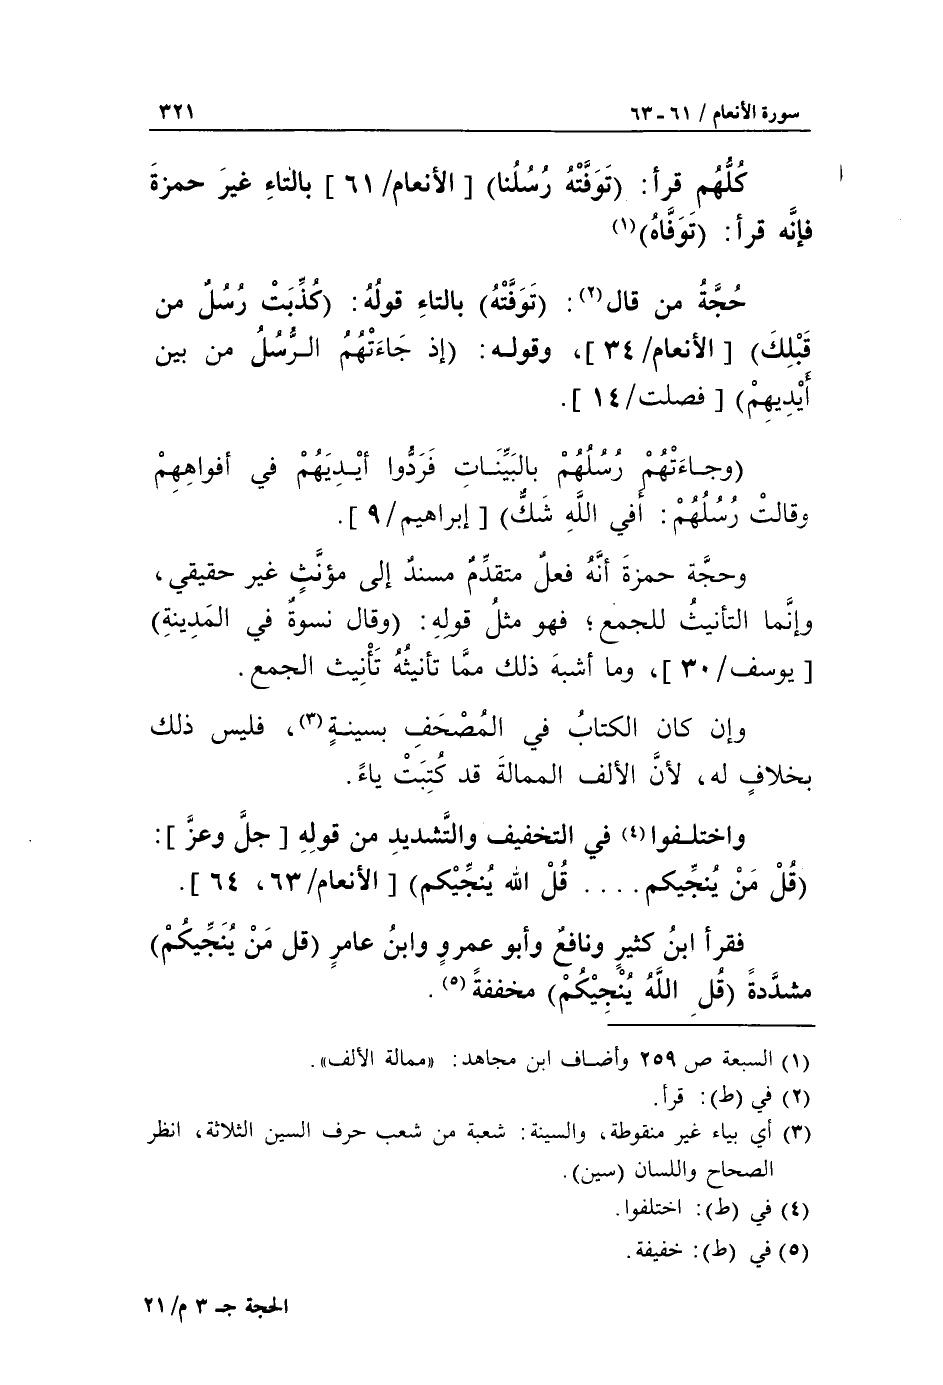 سورة الأنعام / ٦١ - ٦٣
٣٢١
كُلُّهُم قرأ: (تَوَفَّتْهُ رُسُلُنا) [ الأنعام/ ٦١ ] بالتاءِ غيرَ حمزةَ
فإنَّه قرأ: (تَوَفَّاهُ)(١)
حُجَّةُ من قال(٢): (تَوَفَّتْهُ) بالتاءِ قولُهُ: (كُذِّبَتْ رُسُلٌ من
قَبْلِكَ) [ الأنعام/ ٣٤ ]، وقولـه: (إذ جَاءَتْهُمُ الـرُّسُلُ من بين
أَيْدِيهِمْ) [ فصلت/ ١٤ ].
(وجـاءَتْهُمْ رُسُلُهُمْ بالبَيِّنَـاتِ فَرَدُّوا أيْـدِيَهُمْ في أفواهِهِمْ
وقالتْ رُسُلُهُمْ: أَفي اللَّهِ شَكٌّ) [ إبراهيم/ ٩ ].
وحجَّة حمزةَ أنَّهُ فعلٌ متقدِّمٌ مسندٌ إلى مؤنَّثٍ غير حقيقي،
وإنَّما التأنيثُ للجمع؛ فهو مثلُ قولِهِ: (وقال نسوةٌ في المَدِينةِ)
[ يوسف/ ٣٠ ]، وما أشبهَ ذلك ممَّا تأنيثُهُ تَأْنِيث الجمع.
وإن كان الكتابُ في المُصْحَفِ بسينـةٍ(٣)، فليس ذلك
بخلافٍ له، لأنَّ الألف الممالةَ قد كُتِبَتْ ياءً.
واختلـفوا(٤) في التخفيف والتَّشديدِ من قولِهِ [ جلَّ وعزَّ ]:
(قُلْ مَنْ يُنجِّيكم.... قُلْ الله يُنجِّيْكم) [ الأنعام/ ٦٣، ٦٤ ].
فقرأ ابنُ كثيرٍ ونافعٌ وأبو عمرو وابنُ عامرٍ (قل مَنْ يُنَجِّيكُمْ)
مشدَّدةً (قُلِ اللَّهُ يُنْجِيْكُمْ) مخففةً(٥).
(١) السبعة ص ٢٥٩ وأضـاف ابن مجاهد: «ممالة الألف».
(٢) في (ط): قرأ.
(٣) أي بياء غير منقوطة، والسينة: شعبة من شعب حرف السين الثلاثة، انظر
الصحاح واللسان (سين).
(٤) في (ط): اختلفوا.
(٥) في (ط): خفيفة.
الحجة جـ ٣ م/ ٢١